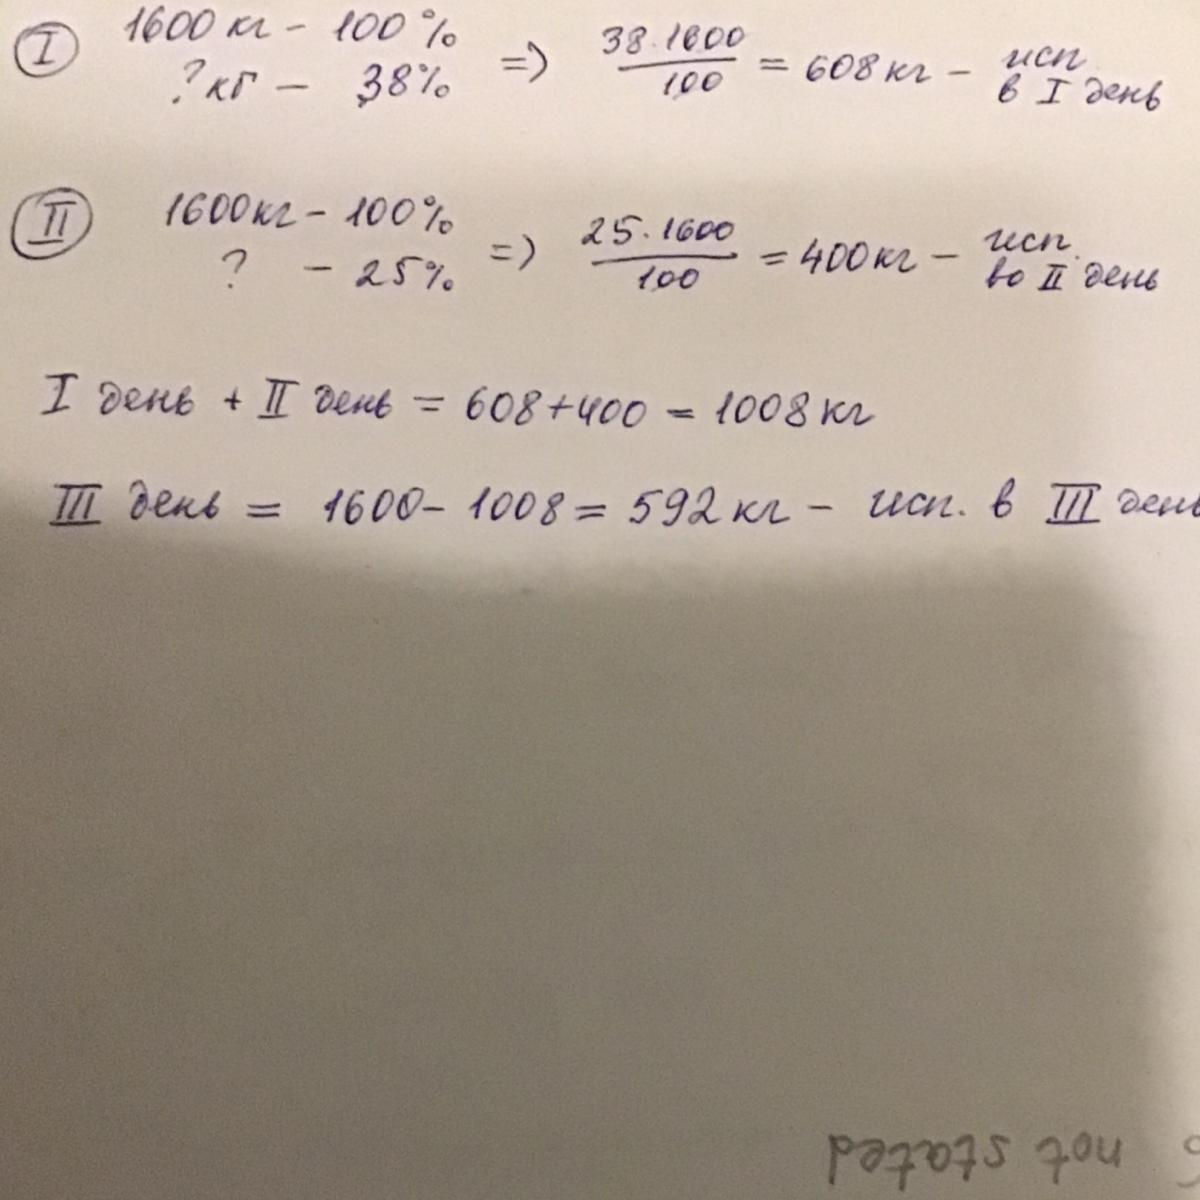 I 1600 кг - 100 % => 38·1600/100 = 608 кг - исп в I день
? кг - 38%
II 1600кг - 100% => 25·1600/100 = 400 кг - исп. во II день
? - 25%
I день + II день = 608+400 = 1008 кг
III день = 1600 - 1008 = 592 кг - исп. в III день
not stated